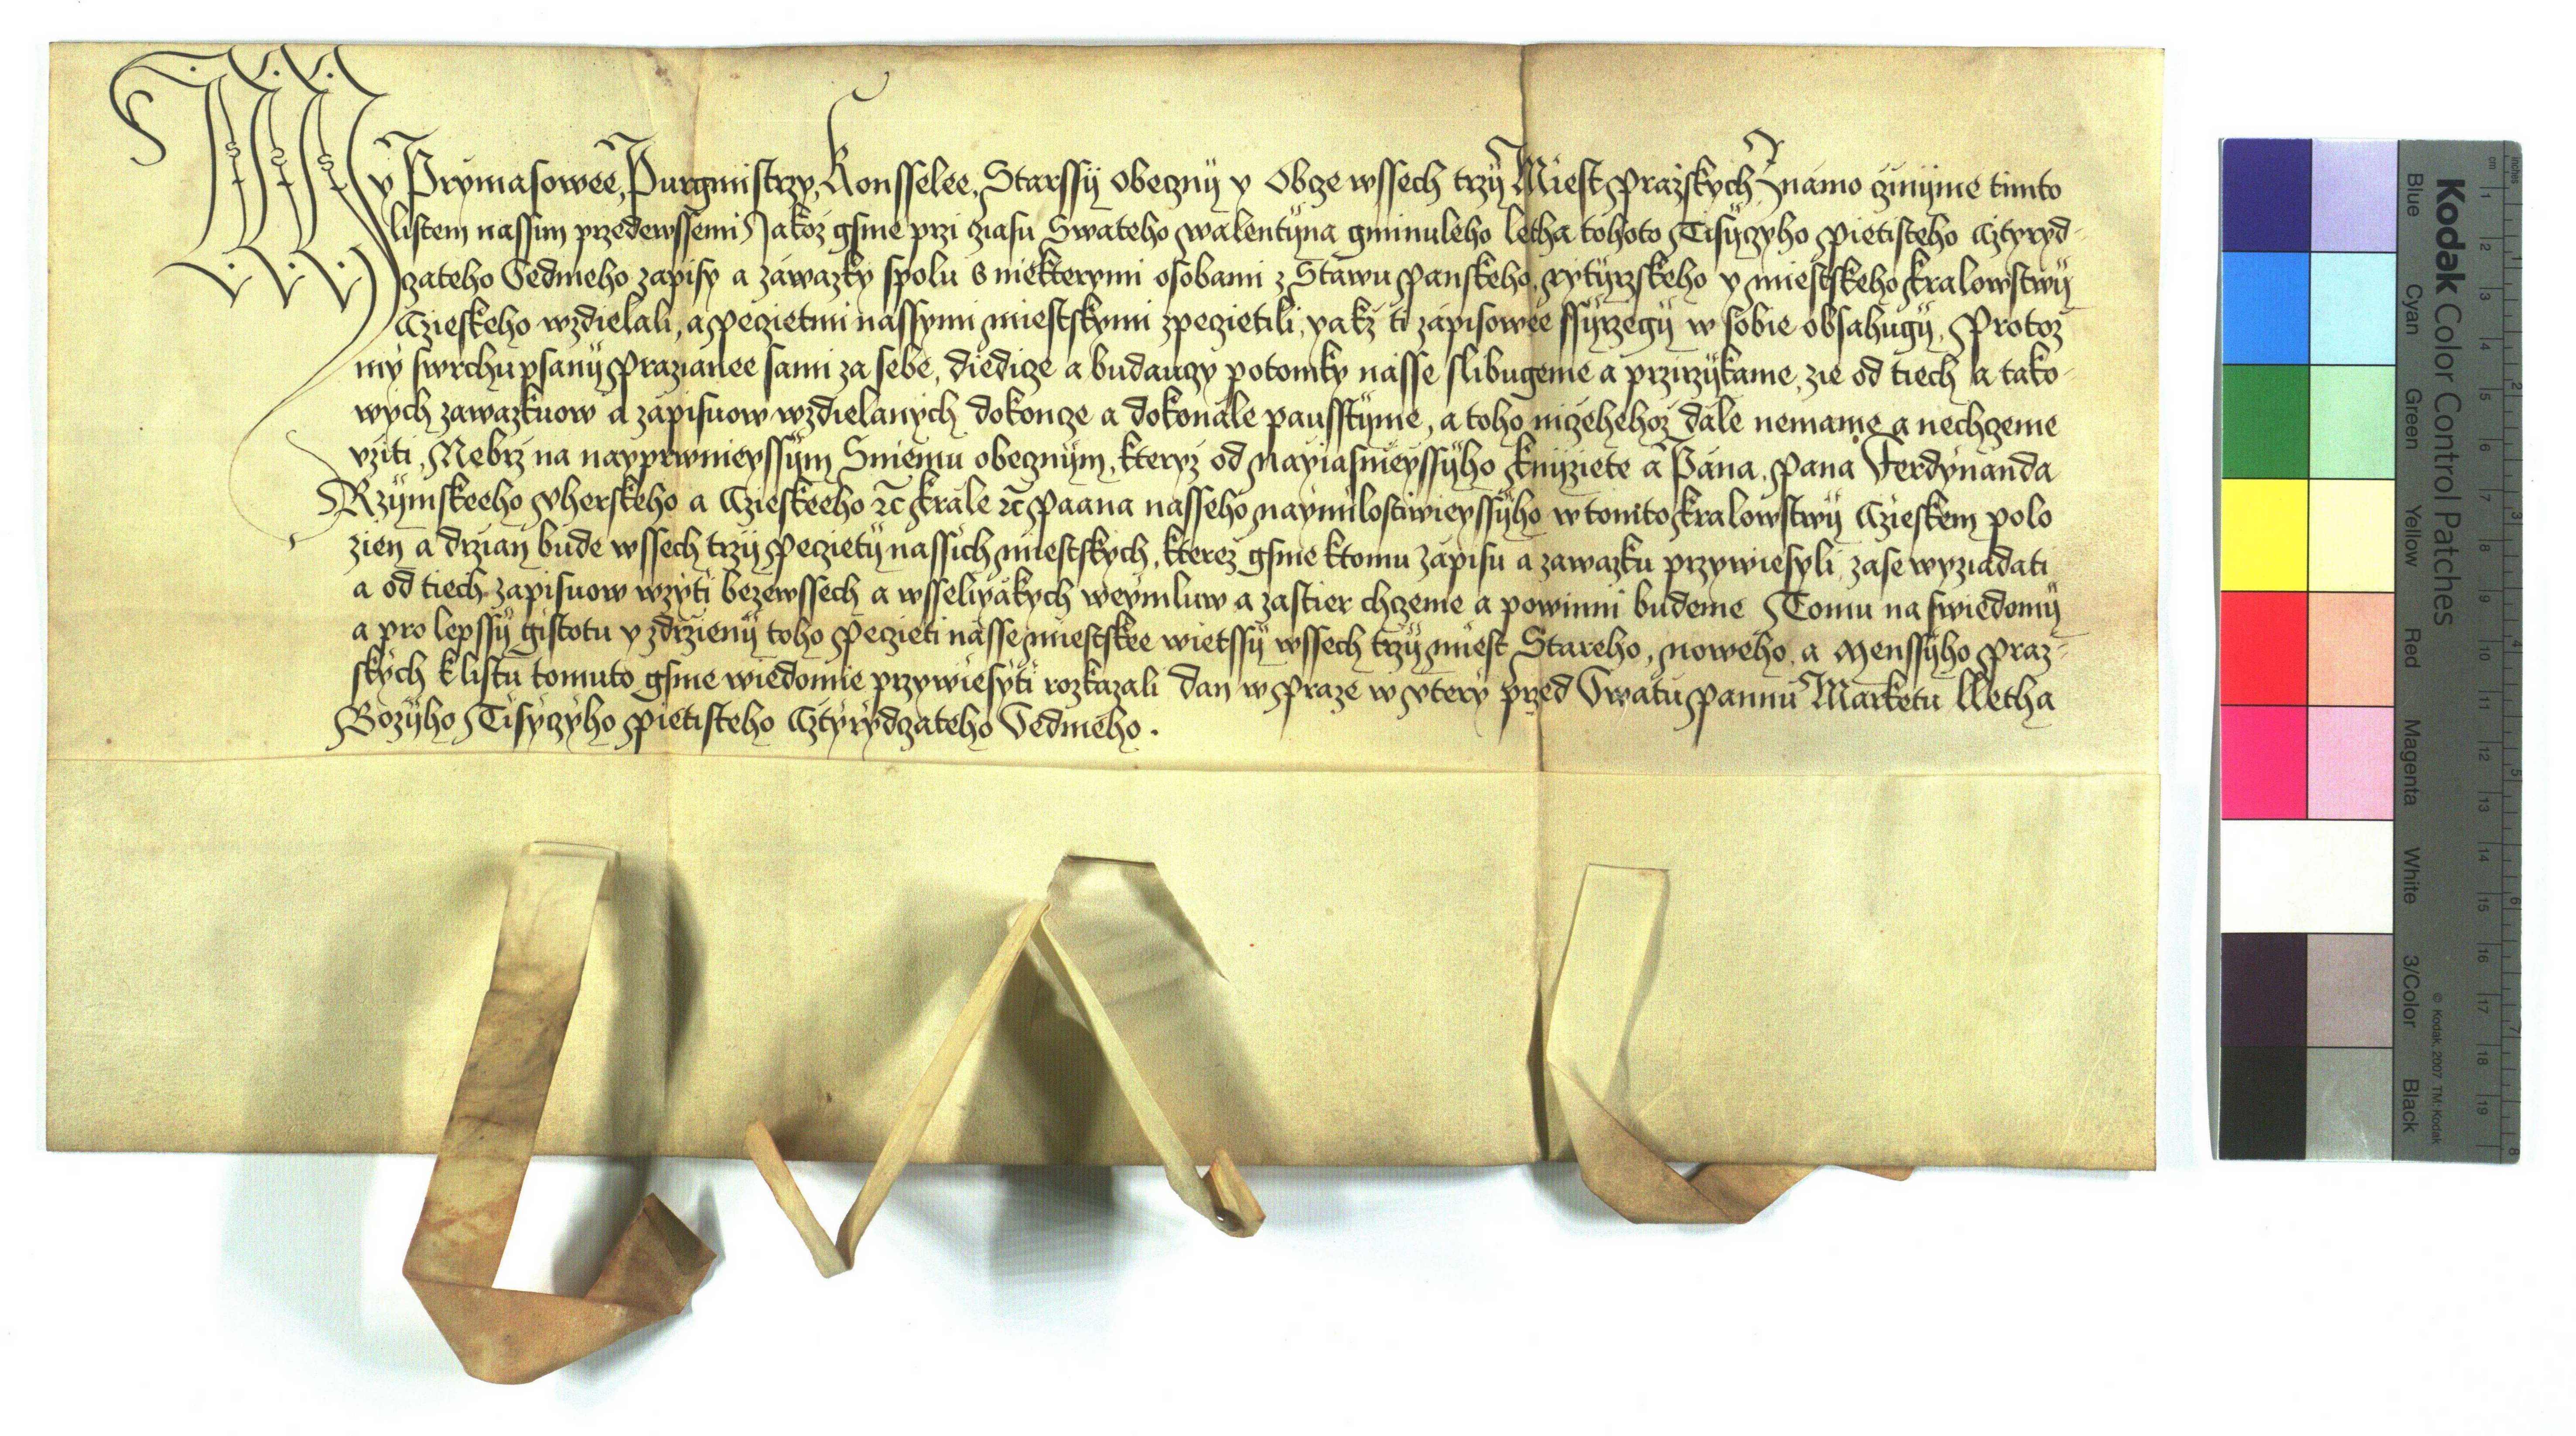 My Prymasowee, Purgmistrzy, Konsselee, Starssÿ obecznÿ y Obcze wssech trzÿ Miest Prażskych Známo cżinÿme timto
listem nassim przedewssemi Jakoż gsme przi cziasu Swateho Walentÿna gminuleho letha tohoto Tisÿczyho Pietisteho Cztyryd-
czateho Sedmeho zapisy a záwazky spolu s niekterymi osobami z Stawu Panskeho, Rytÿrzskeho y Miestskeho Kralowstwÿ
Czieskeho wzdielali, a Peczietmi nassymi Miestskymi zpeczietili, yakż ti zápisowée ssÿrzegÿ w sobie obsahugÿ, Protoż
my swrchupsanÿ Prazianee sami za sebe, diedicze a budauczy potomky násse slibugeme a przirzÿkame, zie od tiech a tako-
wych zawazkuow a zápisuow wzdielanych dokoncze a dokonále paustÿme, a toho niczehehoż dále nemame a nechczeme
vżiti, Nebrż na nayprwnieyssÿm Sniemu obecznÿm, kteryż od Nayiasnieyssÿho Knÿziete a Pána, Pana Ferdynánda
Rzÿmskeeho Vherskeho a Czieskeeho ꝛc̃ Krále ꝛc̃ Paana nasseho Naymilostiwieyssÿho w tomto Kralowstwÿ Czieskem polo
zien a drzian bude wssech trzÿ Peczietÿ nassich Miestskych, kterez gsme ktomu zápisu a zawazku przywiesyli, zase wyziadati
a od tiech zapisuow wzyti bezewssech a wsseliyákych weymluw a zastier chczeme a powinni budeme Tomu na swiedomÿ
a pro lepssÿ gistotu y zdrzienÿ toho Peczieti násse Miestskee wietssÿ wssech trzÿ Miest Stareho, Noweho, a Menssÿho Praż-
skych k listu tomuto gsme wiedomie przywiesyti rozkazali Dan w Praze w Vtery przed Swatu Pannu Marketu Letha
Bożÿho Tisyczyho Pietisteho Cztyrydczateho Sedmeho.
Kodak Color Control Patches
Blue Cyan Green Yellow Red Magenta White 3/Color Black
© Kodak, 2007 TM: Kodak
cm 1 2 3 4 5 6 7 8 9 10 11 12 13 14 15 16 17 18 19
inches 1 2 3 4 5 6 7 8